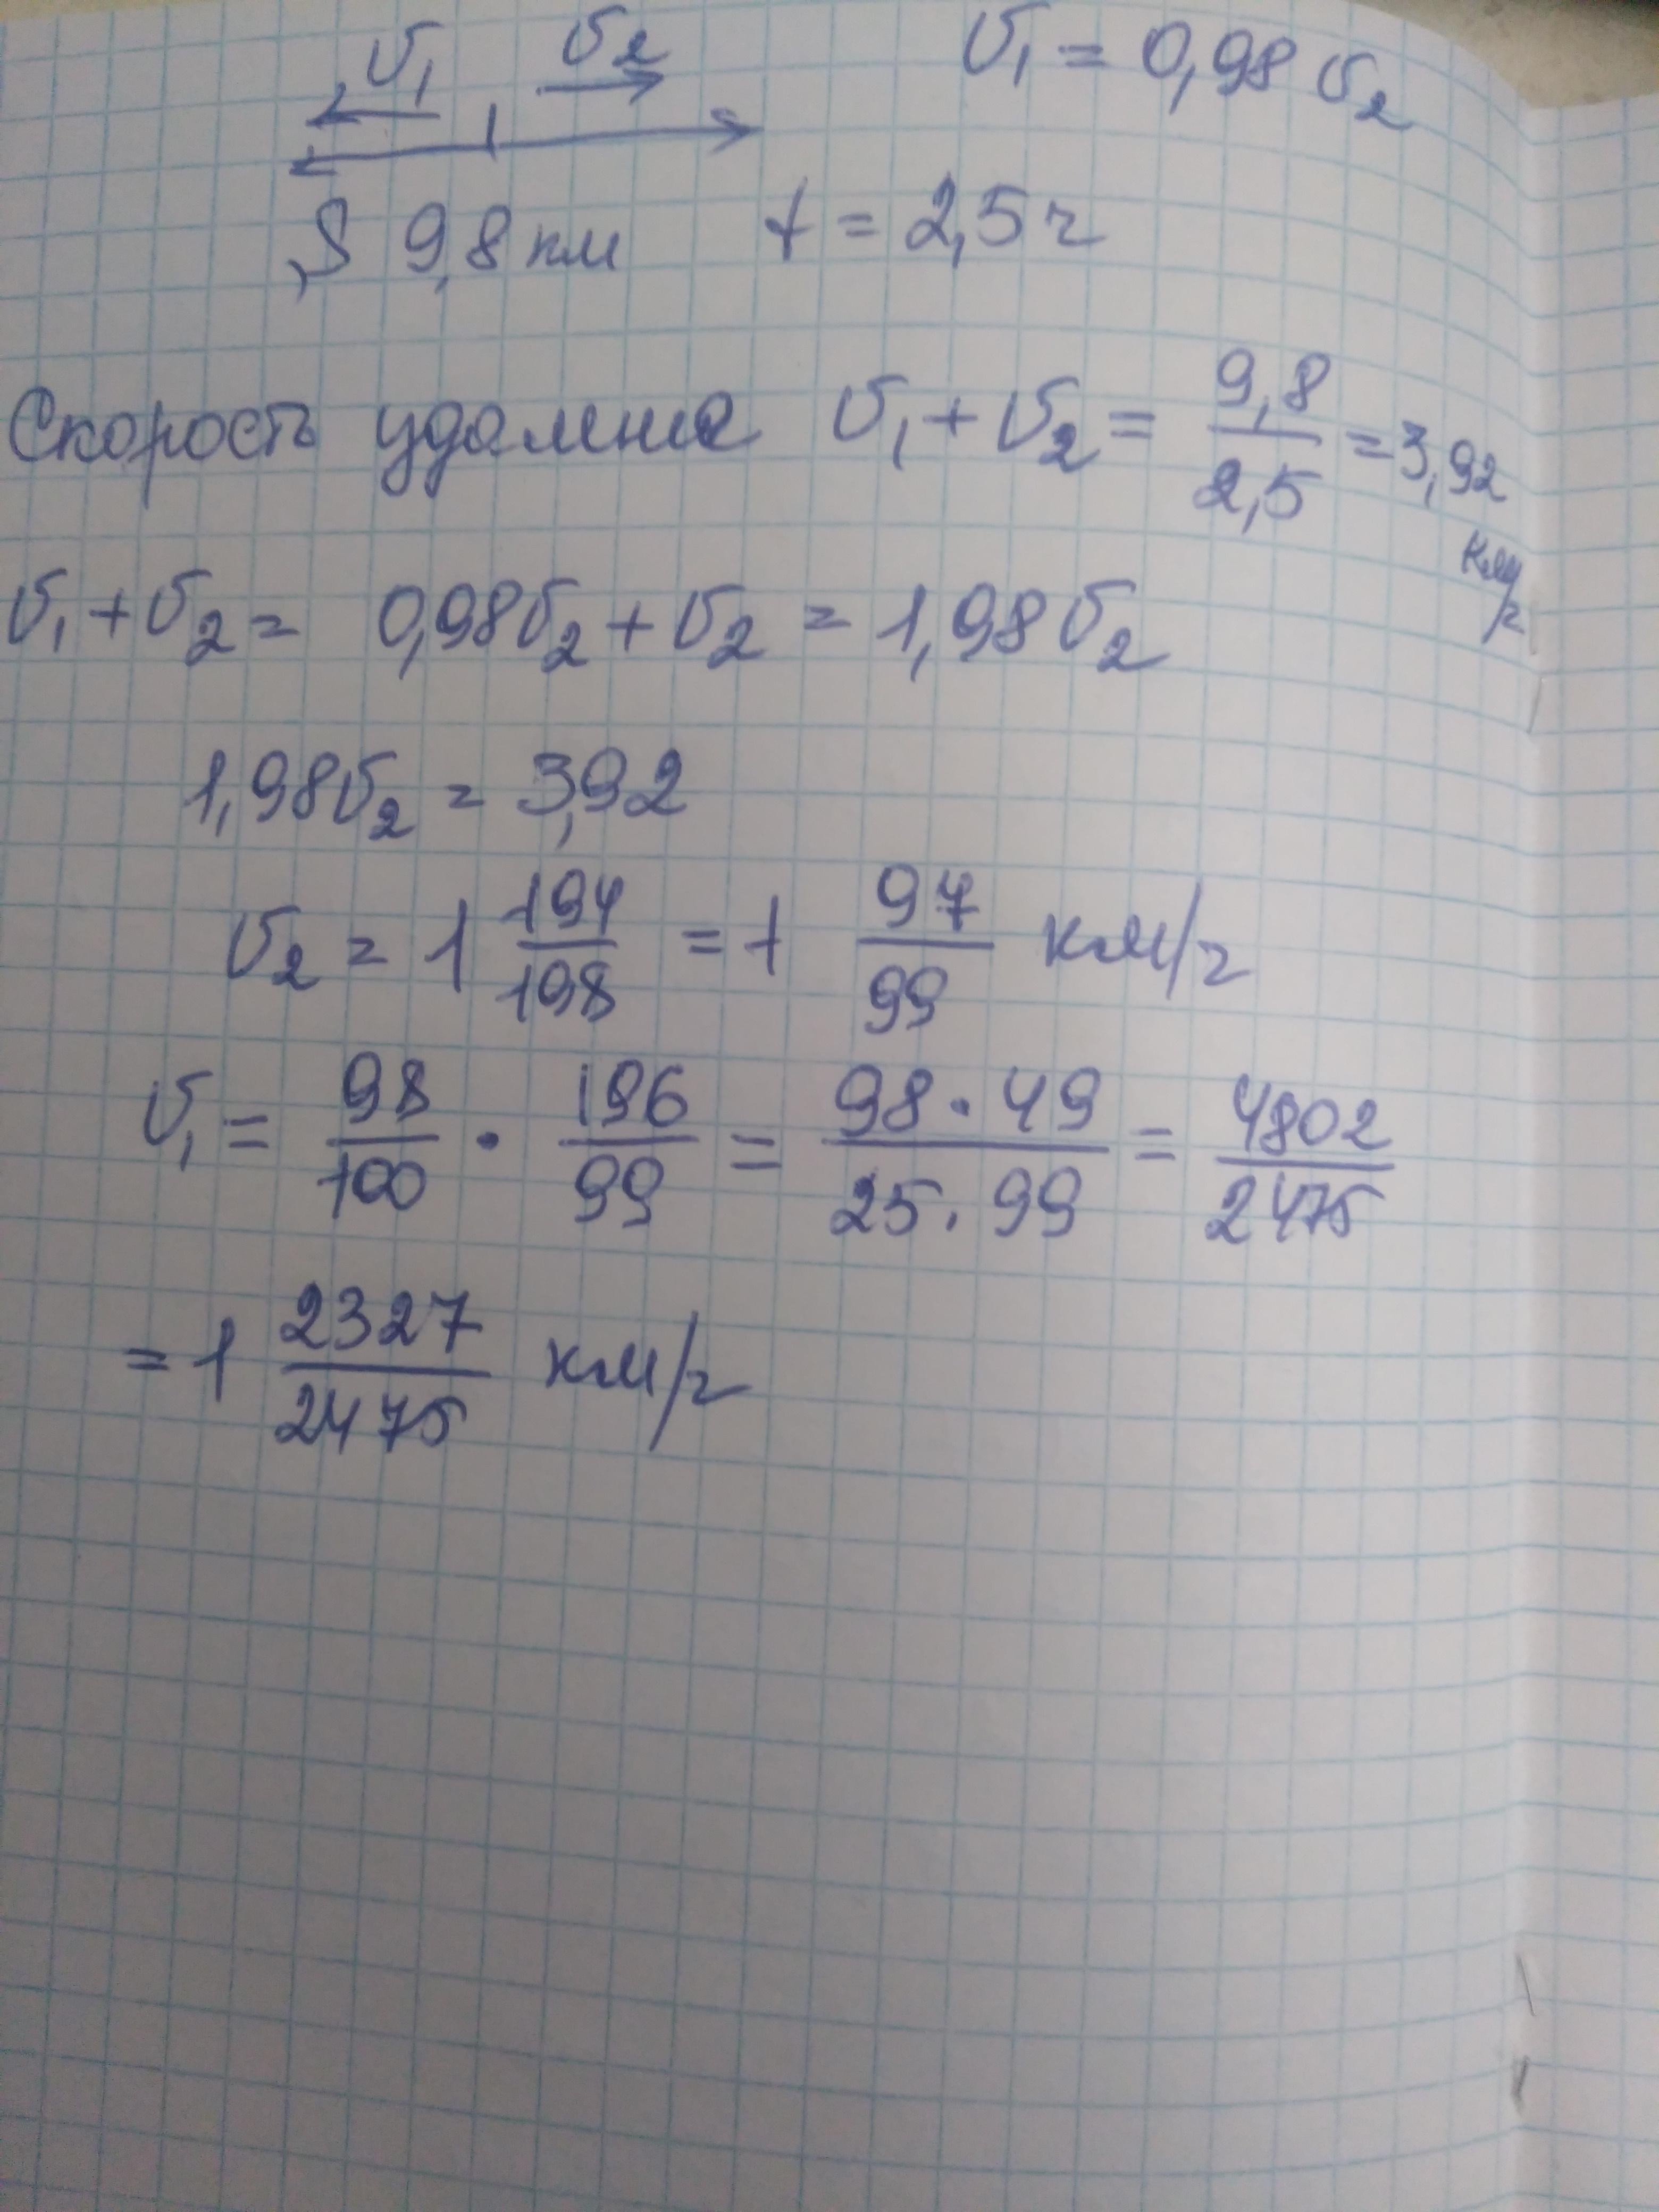 v₁ v₂ v₁ = 0,98 v₂
S 9,8 км t = 2,5 ч
Скорость удаления v₁ + v₂ = 9,8/2,5 = 3,92 км/ч
v₁ + v₂ = 0,98v₂ + v₂ = 1,98v₂
1,98v₂ = 3,92
v₂ = 1 194/198 = 1 97/99 км/ч
v₁ = 98/100 · 196/99 = 98·49/25·99 = 4802/2475
= 1 2327/2475 км/ч